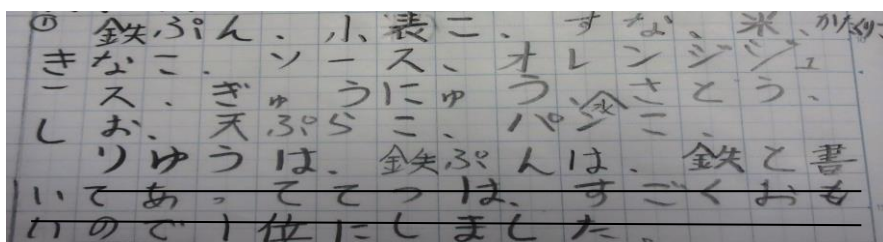 ① 鉄ぷん、小表こ、すな、米、かたくりこ
きなこ、ソース、オレンジジュ
ース、ぎゅうにゅう、水、さとう、
しお、天ぷらこ、パンこ、
りゆうは、鉄ぷんは、鉄と書
いてあっててつは、すごくおも
いので1位にしました。